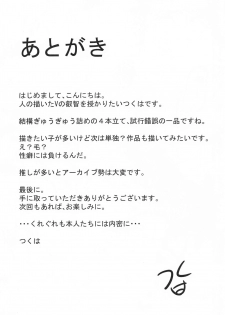 あとがき
はじめまして、こんにちは。
人の描いたVの叡智を授かりたいつくはです。
結構ぎゅうぎゅう詰めの４本立て、試行錯誤の一品ですね。
描きたい子が多いけど次は単独？作品も描いてみたいです。
え？毛？
性癖には負けるんだ。
推しが多いとアーカイブ勢は大変です。
最後に。
手に取っていただきありがとうございます。
次回もあれば、お楽しみに。
・・・くれぐれも本人たちには内密に・・・
つくは
つくは